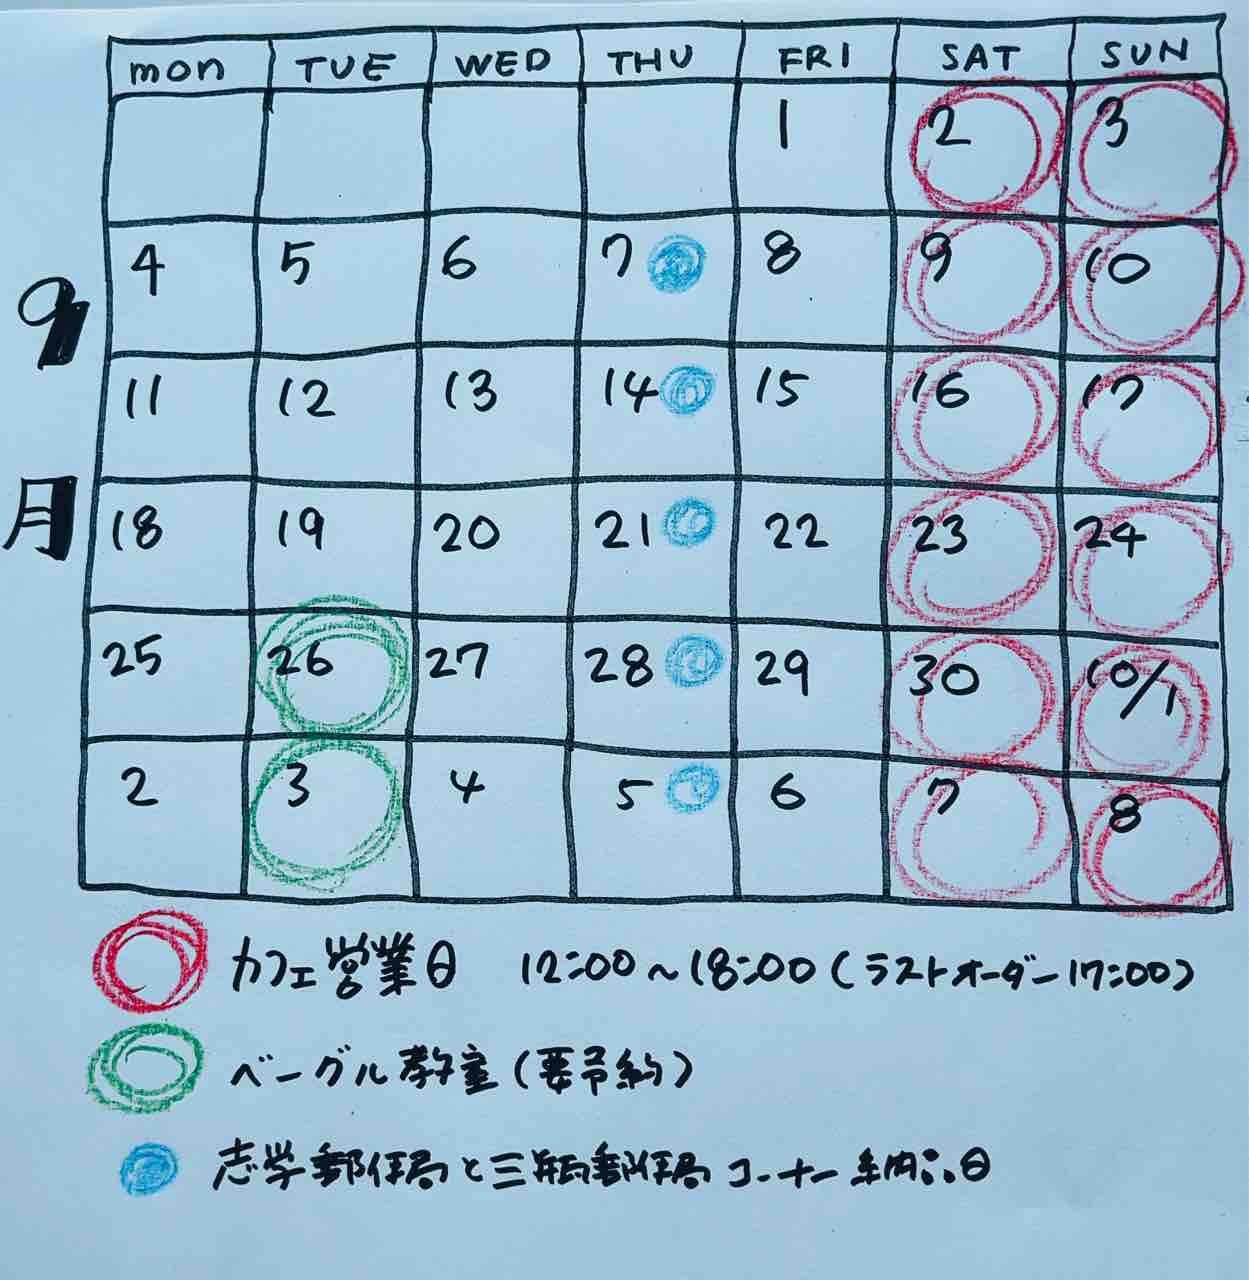 MON TUE WED THU FRI SAT SUN
1 2 3
4 5 6 7 8 9 10
9月
11 12 13 14 15 16 17
18 19 20 21 22 23 24
25 26 27 28 29 30 10/1
2 3 4 5 6 7 8
カフェ営業日 12:00〜18:00(ラストオーダー17:00)
ベーグル教室(要予約)
志学郵便局と三瓶郵便局コーナー納品日